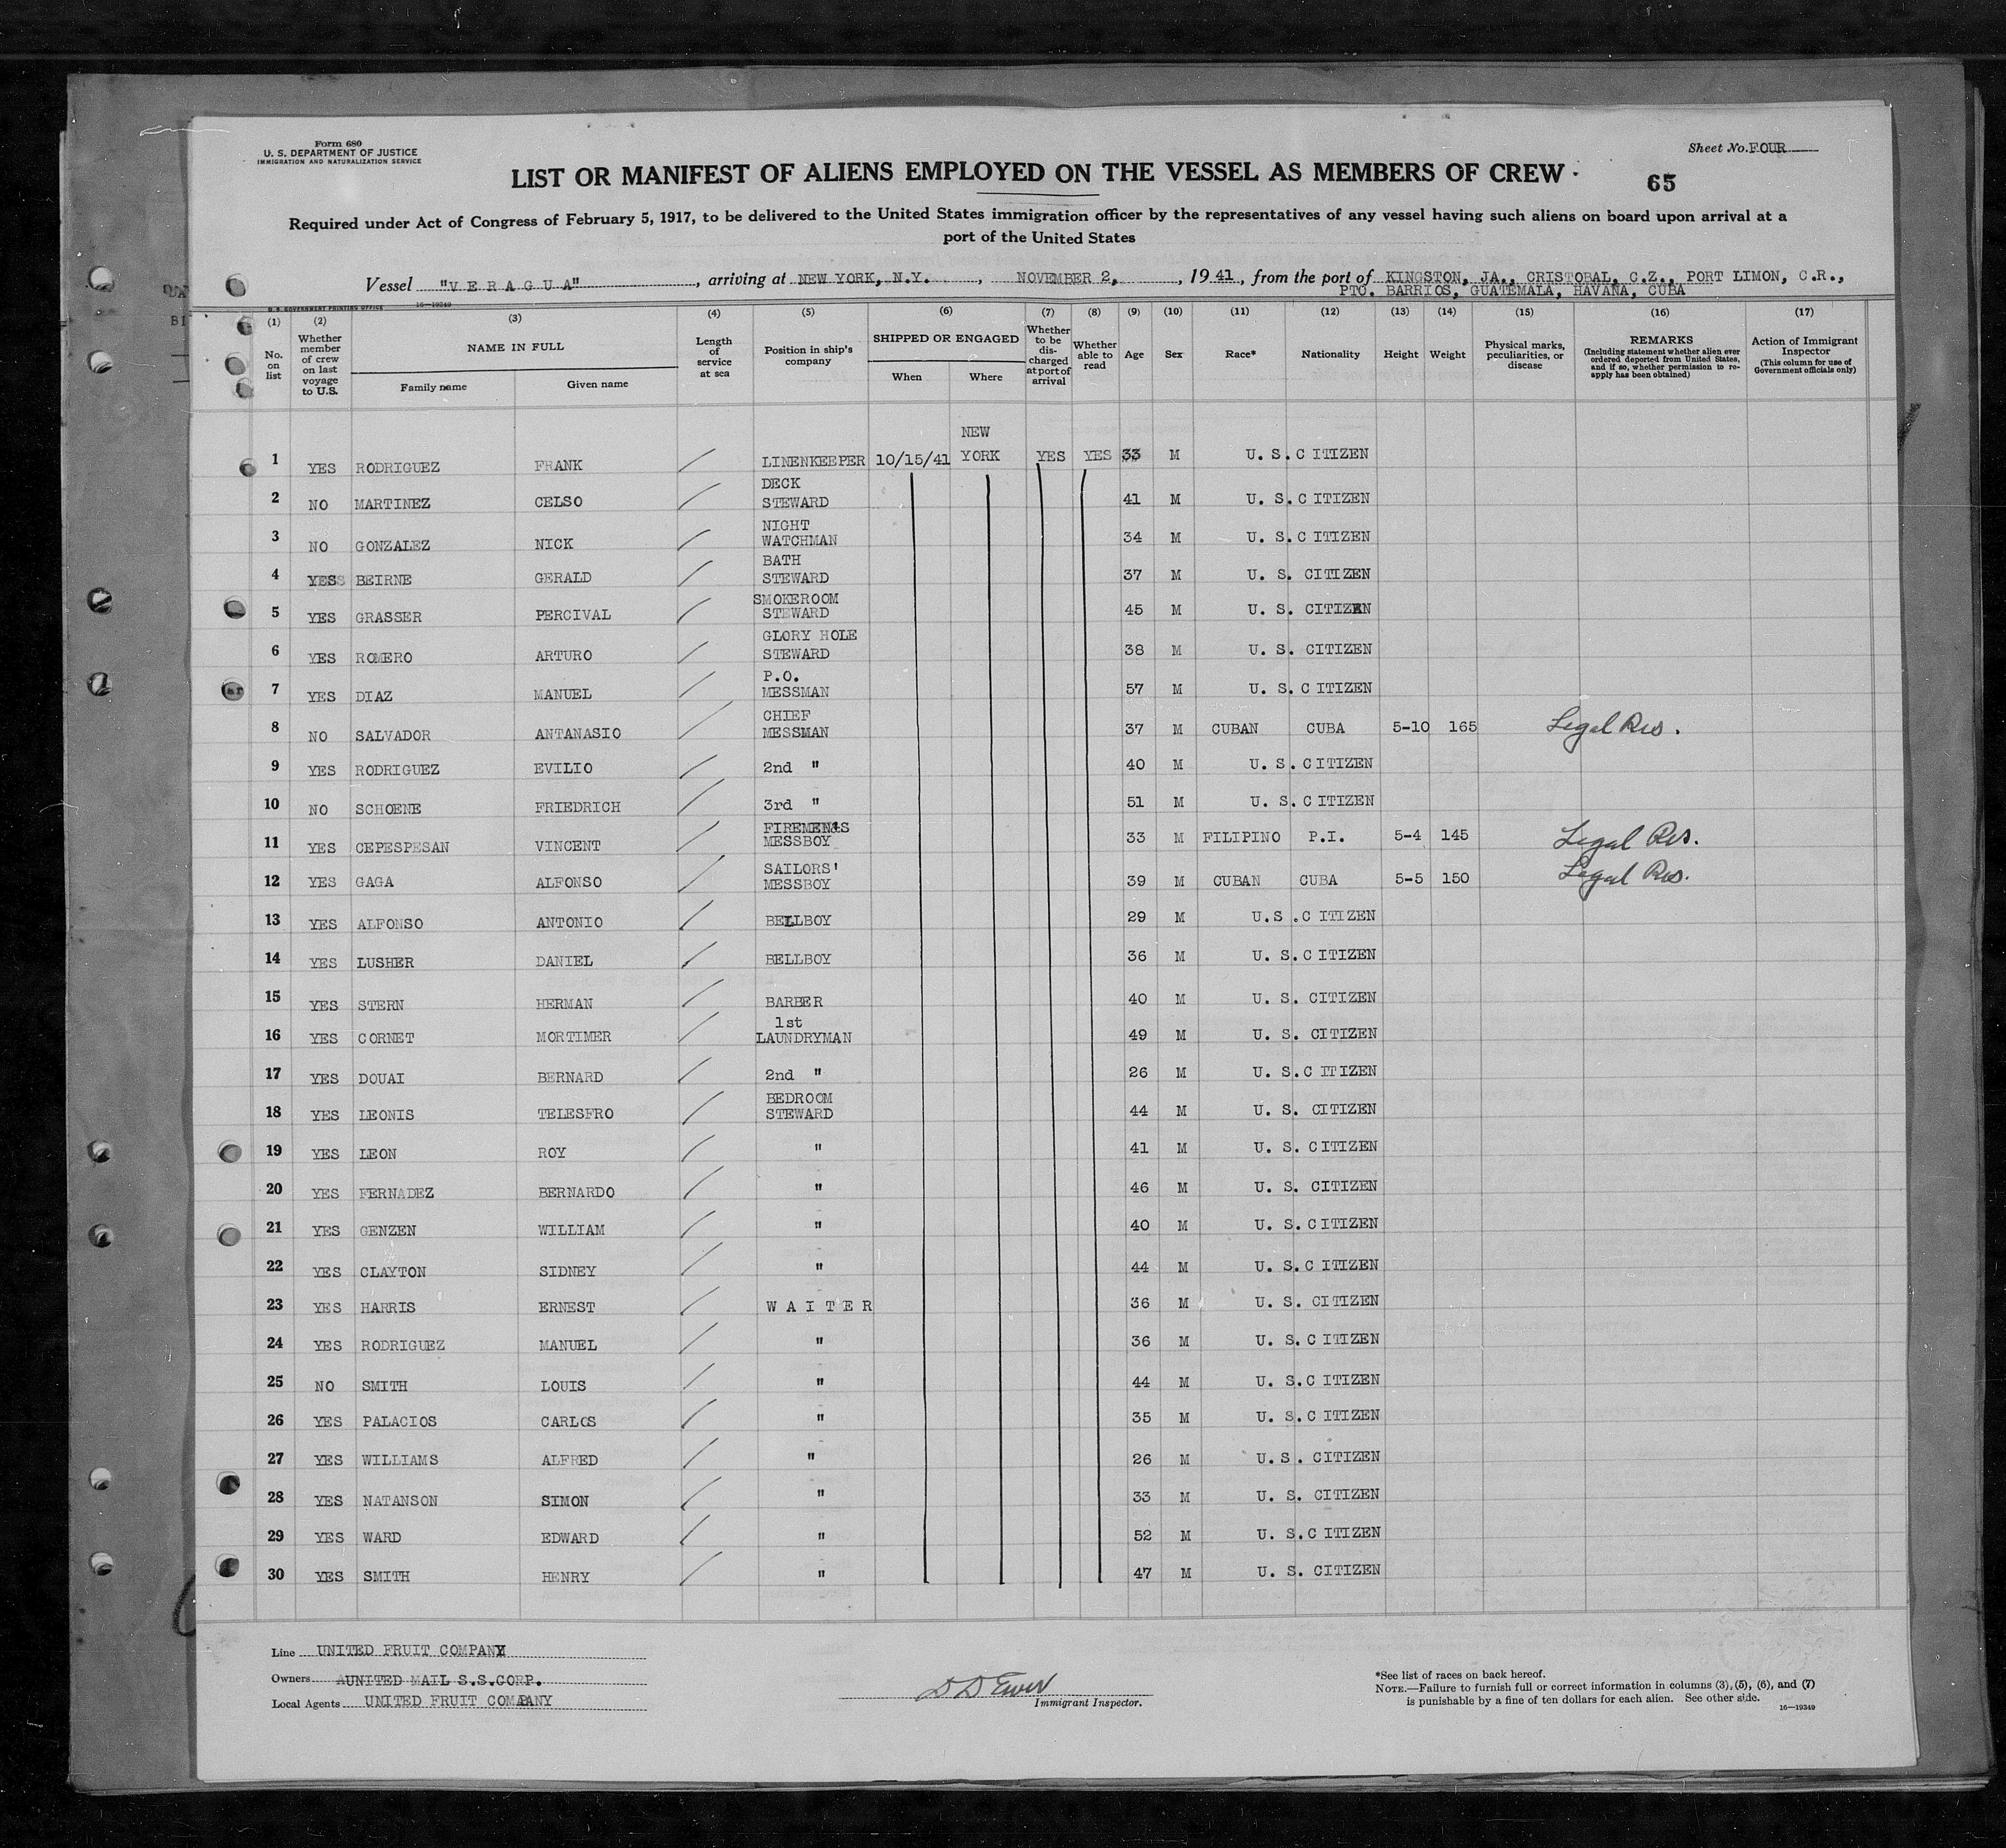 Form 680
U. S. DEPARTMENT OF JUSTICE
IMMIGRATION AND NATURALIZATION SERVICE
Sheet No. FOUR
LIST OR MANIFEST OF ALIENS EMPLOYED ON THE VESSEL AS MEMBERS OF CREW
65
Required under Act of Congress of February 5, 1917, to be delivered to the United States immigration officer by the representatives of any vessel having such aliens on board upon arrival at a
port of the United States
Vessel "VERAGUA", arriving at NEW YORK, N.Y., NOVEMBER 2, 1941, from the port of KINGSTON, JA., CRISTOBAL, C.Z., PORT LIMON, C.R.,
PTO. BARRIOS, GUATEMALA, HAVANA, CUBA
U. S. GOVERNMENT PRINTING OFFICE 16—19349
(1) No. on list
(2) Whether member of crew on last voyage to U.S.
(3) NAME IN FULL Family name Given name
(4) Length of service at sea
(5) Position in ship's company
(6) SHIPPED OR ENGAGED When Where
(7) Whether to be discharged at port of arrival
(8) Whether able to read
(9) Age
(10) Sex
(11) Race*
(12) Nationality
(13) Height
(14) Weight
(15) Physical marks, peculiarities, or disease
(16) REMARKS (Including statement whether alien ever ordered deported from United States, and if so, whether permission to reapply has been obtained)
(17) Action of Immigrant Inspector (This column for use of Government officials only)
1 YES RODRIGUEZ FRANK LINENKEEPER 10/15/41 NEW YORK YES YES 33 M U. S. CITIZEN
2 NO MARTINEZ CELSO DECK STEWARD 41 M U. S. CITIZEN
3 NO GONZALEZ NICK NIGHT WATCHMAN 34 M U. S. CITIZEN
4 YES BEIRNE GERALD BATH STEWARD 37 M U. S. CITIZEN
5 YES GRASSER PERCIVAL SMOKEROOM STEWARD 45 M U. S. CITIZEN
6 YES ROMERO ARTURO GLORY HOLE STEWARD 38 M U. S. CITIZEN
7 YES DIAZ MANUEL P.O. MESSMAN 57 M U. S. CITIZEN
8 NO SALVADOR ANTANASIO CHIEF MESSMAN 37 M CUBAN CUBA 5-10 165 Legal Res.
9 YES RODRIGUEZ EVILIO 2nd " 40 M U. S. CITIZEN
10 NO SCHOENE FRIEDRICH 3rd " 51 M U. S. CITIZEN
11 YES CEPESPESAN VINCENT FIREMEN'S MESSBOY 33 M FILIPINO P.I. 5-4 145 Legal Res.
12 YES GAGA ALFONSO SAILORS' MESSBOY 39 M CUBAN CUBA 5-5 150 Legal Res.
13 YES ALFONSO ANTONIO BELLBOY 29 M U.S. CITIZEN
14 YES LUSHER DANIEL BELLBOY 36 M U. S. CITIZEN
15 YES STERN HERMAN BARBER 40 M U. S. CITIZEN
16 YES CORNET MORTIMER 1st LAUNDRYMAN 49 M U. S. CITIZEN
17 YES DOUAI BERNARD 2nd " 26 M U. S. CITIZEN
18 YES LEONIS TELESFRO BEDROOM STEWARD 44 M U. S. CITIZEN
19 YES LEON ROY " 41 M U. S. CITIZEN
20 YES FERNADEZ BERNARDO " 46 M U. S. CITIZEN
21 YES GENZEN WILLIAM " 40 M U. S. CITIZEN
22 YES CLAYTON SIDNEY " 44 M U. S. CITIZEN
23 YES HARRIS ERNEST WAITER 36 M U. S. CITIZEN
24 YES RODRIGUEZ MANUEL " 36 M U. S. CITIZEN
25 NO SMITH LOUIS " 44 M U. S. CITIZEN
26 YES PALACIOS CARLOS " 35 M U. S. CITIZEN
27 YES WILLIAMS ALFRED " 26 M U.S. CITIZEN
28 YES NATANSON SIMON " 33 M U. S. CITIZEN
29 YES WARD EDWARD " 52 M U. S. CITIZEN
30 YES SMITH HENRY " 47 M U. S. CITIZEN
Line UNITED FRUIT COMPANY
Owners UNITED MAIL S.S.CORP.
Local Agents UNITED FRUIT COMPANY
Immigrant Inspector.
*See list of races on back hereof.
NOTE.—Failure to furnish full or correct information in columns (3), (5), (6), and (7)
is punishable by a fine of ten dollars for each alien. See other side.
16—19349